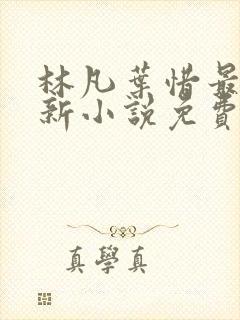 林凡葉惜最
新小說免費
真學真